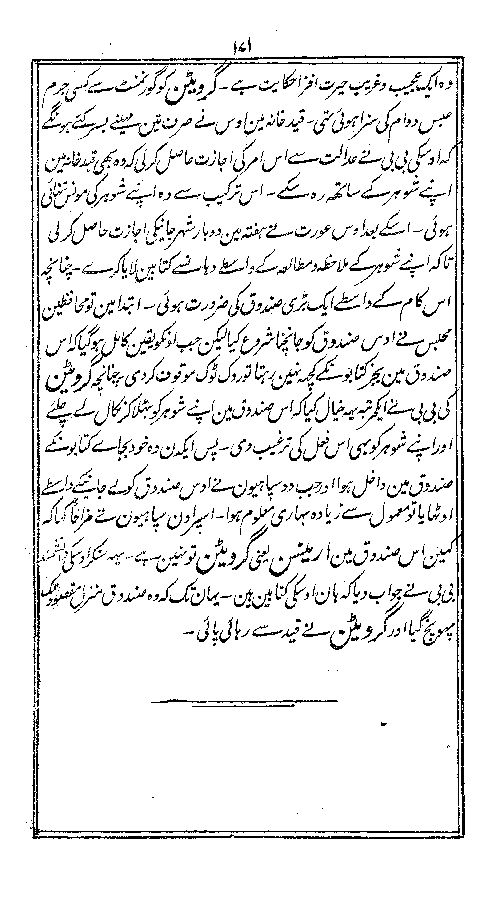 ۱۷۱
وہ ایک عجیب و غریب حیرت افزا حکایت ہے ۔ گروٹین کو گورنمنٹ سے کسی جرم
حبس دوام کی سزا ہوئی تھی ۔ قید خانہ مین اوس نے صرف تین مہینے بسر کئے ہونگے
کہ اوسکی بی بی نے عدالت سے اس امر کی اجازت حاصل کرلی کہ وہ بھی قید خانہ مین
اپنے شوہر کے ساتھہ رہ سکے ۔ اس ترکیب سے وہ اپنے شوہر کی مونس تنہائی
ہوئی ۔ اسکے بعد اوس عورت نے ہفتہ مین دوبار شہر جانیکی اجازت حاصل کرلی
تاکہ اپنے شوہر کے ملاحظہ و مطالعہ کے واسطے وہانسے کتابین لایا کرے ۔ چنانچہ
اس کام کے واسطے ایک بڑی صندوق کی ضرورت ہوئی ۔ ابتدا مین تو محافظین
محبس نے اوس صندوق کو جانچنا شروع کیا لیکن جب اونکو یقین کامل ہوگیا کہ اس
صندوق مین بجز کتابونکے کچہہ نہین رہتا تو روک ٹوک موقوف کردی چنانچہ گروٹین
کی بی بی نے ایکمرتبہ یہہ خیال کیا کہ اس صندوق مین اپنے شوہر کو بٹھلا کر نکال لے چلئے
اور اپنے شوہر کو بھی اس فعل کی ترغیب دی ۔ پس ایکدن وہ خود بجاے کتابونکے
صندوق مین داخل ہوا اور جب دو سپاہیون نے اوس صندوق کو لے جانیکے واسطے
اوٹھایا تو معمول سے زیادہ بھاری معلوم ہوا ۔ اسپر اون سپاہیون نے مزاحاً کہا کہ
کہین اس صندوق مین ارمینسن یعنی گروٹین تو نہین ہے ۔ یہہ سنکر اوسکی دانشمند
بی بی نے جواب دیا کہ ہان اوسکی کتابین ہین ۔ یہان تک کہ وہ صندوق منزل مقصود تک
پہونچ گیا اور گروٹین نے قید سے رہائی پائی ۔